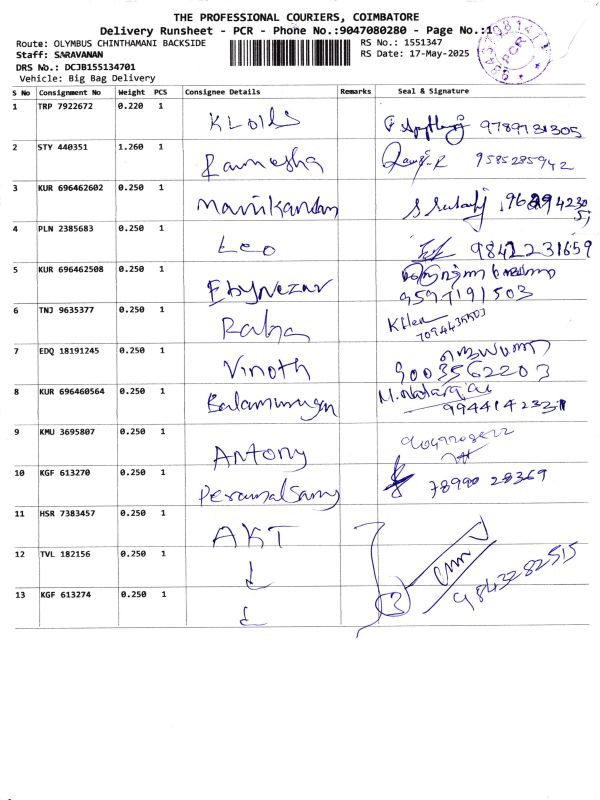 THE PROFESSIONAL COURIERS, COIMBATORE
Delivery Runsheet - PCR - Phone No.:9047080280 - Page No.:1
Route: OLYMBUS CHINTHAMANI BACKSIDE RS No.: 1551347
Staff: SARAVANAN RS Date: 17-May-2025
DRS No.: DCJB155134701
Vehicle: Big Bag Delivery
PCR
S No Consignment No Weight PCS Consignee Details Remarks Seal & Signature
1 TRP 7922672 0.220 1 9789731305
2 STY 440351 1.260 1 Ramesha 9585285942
3 KUR 696462602 0.250 1 Manikandan
4 PLN 2385683 0.250 1 Leo 9842231659
5 KUR 696462508 0.250 1 Ebynezar
9597191503
6 TNJ 9635377 0.250 1
7 EDQ 18191245 0.250 1 Vinoth
9003562203
8 KUR 696460564 0.250 1 Balamurugan M. Natarajan
9944142331
9 KMU 3695807 0.250 1 Antony
10 KGF 613270 0.250 1 Perumalsamy 78990 28369
11 HSR 7383457 0.250 1 AKT
12 TVL 182156 0.250 1
13 KGF 613274 0.250 1 3 9843282515